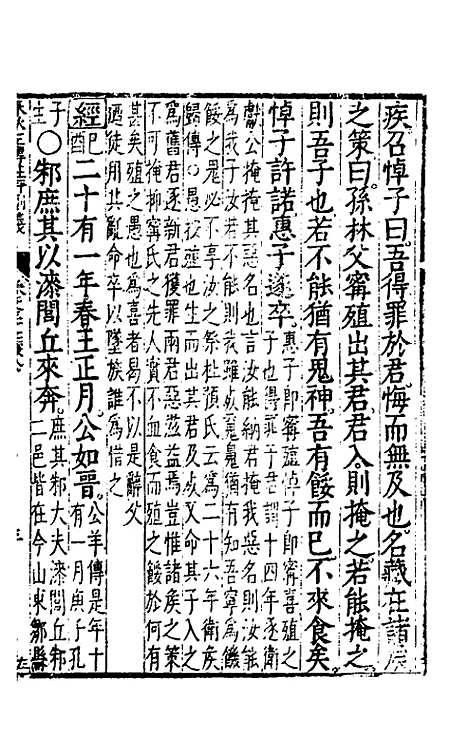 疾召悼子曰吾得罪於君悔而無及也名藏在諸侯
之策曰孫林父甯殖出其君君入則掩之若能掩之
則吾子也若不能猶有鬼神吾有餒而已不來食矣
悼子許諾惠子遂卒惠子即甯殖悼子即甯喜殖之
子也得罪于君謂十四年逐衛
獻公掩掩其惡名也言汝能納君掩我惡名則汝能
為我子汝若不能則我雖成鬼鬼猶有知吾寧為饑
餒之鬼必不享汝之祭杜預氏云為二十六年衛侯
歸傳〇愚
為舊君逐新君獲罪兩君惡滋益焉豈惟諸侯之策
不可掩抑甯氏之先人實不血食而殖之餒於何有
甚矣殖之愚也為喜者曷不以是辭父
迺徒用其亂命卒以墜族誰為信之
經己酉二十有一年春王正月公如晉公羊傳是年十
有一月庚子孔
子生〇邾庶其以漆閭丘來奔庶其邾大夫漆閭丘邾
二邑皆在今山東鄒縣